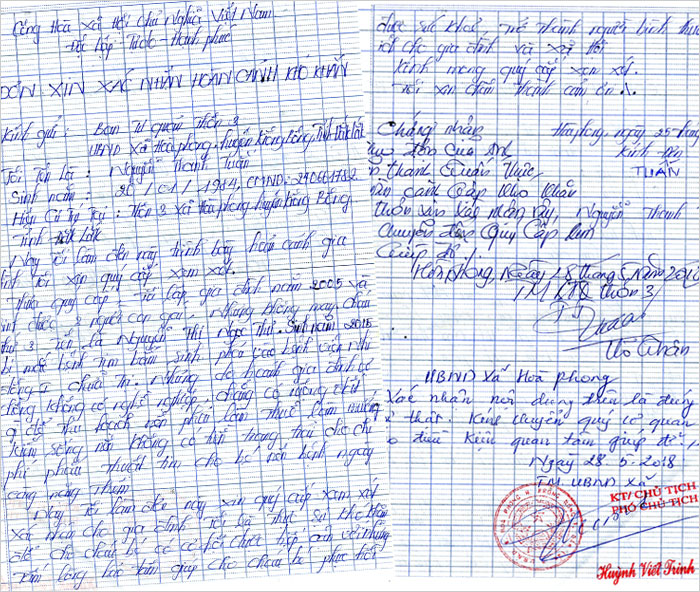 Cộng Hoà Xã Hội Chủ Nghĩa Việt Nam
Độc Lập Tự do - Hạnh phúc
ĐƠN XIN XÁC NHẬN HOÀN CẢNH KHÓ KHĂN
Kính gửi : Ban tự quản Thôn 3
UBND Xã Hoà phong, huyện Krông Bông, Tỉnh Đắk Lắk
Tôi Tên Là : Nguyễn Thanh Tuấn
Sinh năm : 20 / 01 / 1984, CMND:
Hiện Cư Trú Tại : Thôn 3 Xã Hoà phong huyện Krông Bông
Tỉnh Đắk Lắk
Nay tôi làm đơn này trình bày hoàn cảnh gia
đình tôi xin quý cấp xem xét.
Thưa quý cấp tôi lập gia đình năm 2005 và
sinh được 3 người con gái, nhưng không may cháu
thứ 3 tên là Nguyễn Thị Ngọc Thư. Sinh năm 2015
bị mắc bệnh tim bẩm sinh phải vào bệnh viện Nhi
đồng 1 chữa trị. Nhưng do hoàn cảnh gia đình
không có nghề nghiệp, chẳng có ruộng đất
gì để thu hoạch nên phải làm thuê làm mướn
kiếm sống nên không có tiền trang trải cho chi
phí phẫu thuật tim cho bé nên bệnh ngày
càng nặng thêm
Nay tôi làm đơn này xin quý cấp xem xét
xác nhận cho gia đình tôi là thực sự khó khăn
để cho cháu bé có cơ hội được tiếp cận với những
tấm lòng hảo tâm giúp cho cháu bé phục hồi
được sức khoẻ trở thành người bình thường
ích cho gia đình và xã hội
Kính mong quý cấp xem xét.
Tôi xin chân thành cảm ơn ./.
Chứng nhận
Hoà phong, ngày 25 tháng
Kính đơn
TUẤN
đơn của anh
thanh Tuấn Thực,
hoàn cảnh Cấp Khó Khăn
thôn xin xác nhận này, Nguyễn Thanh T
Chuyển đến Quý Cấp làm
Giúp đỡ.
Hoà Phong, Ngày 28 tháng 5 Năm 2018
TM BTQ thôn 3
Võ Chân
UBND Xã Hoà phong
Xác nhận nội dung trên là đúng
sự thật. Kính chuyển quý cơ quan
có điều kiện quan tâm giúp đỡ./.
Ngày 28. 5. 2018
TM UBND Xã
KT/ CHỦ TỊCH
PHÓ CHỦ TỊCH
Huỳnh Viết Trinh